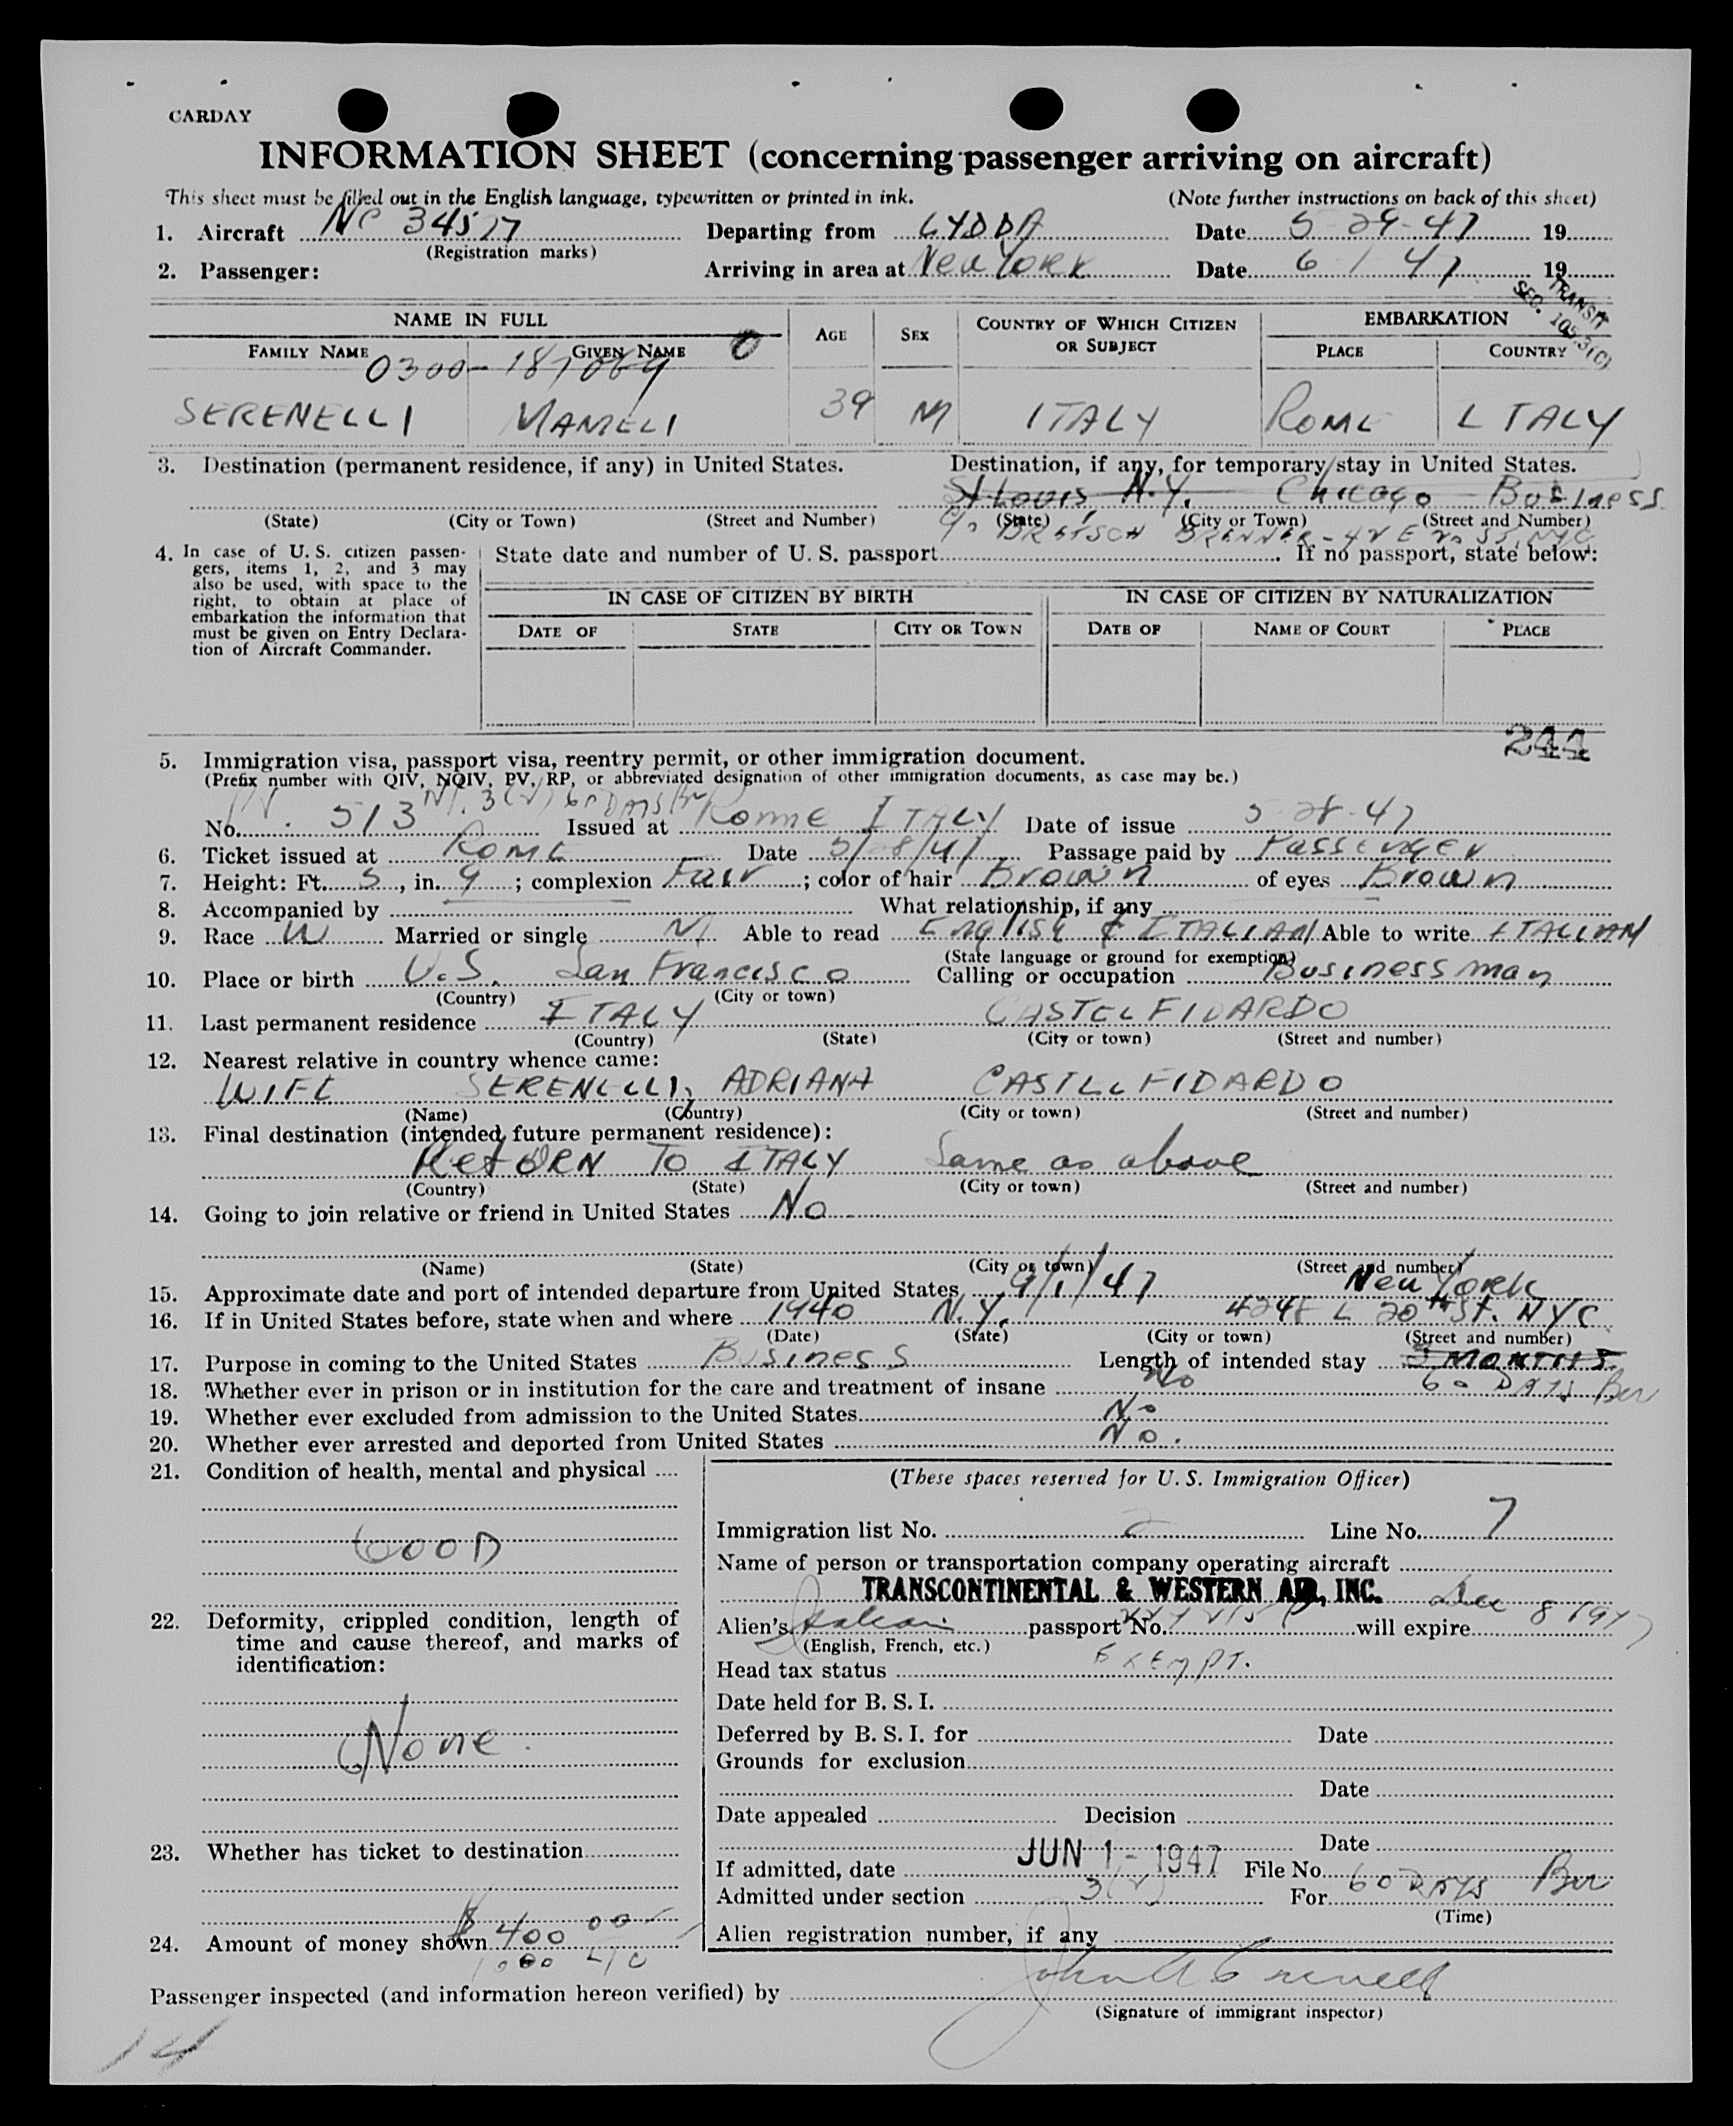 CARDAY
INFORMATION SHEET (concerning passenger arriving on aircraft)
This sheet must be filled out in the English language, typewritten or printed in ink. (Note further instructions on back of this sheet)
1. Aircraft NC 34577 Departing from LYDDA Date 5-29-47 19
(Registration marks)
2. Passenger: Arriving in area at New York Date 6 1 47 19
TRANSIT
SEC. 105.3(C)
NAME IN FULL AGE SEX COUNTRY OF WHICH CITIZEN OR SUBJECT EMBARKATION
FAMILY NAME GIVEN NAME O PLACE COUNTRY
0300-187069
SERENELLI MAMELI 39 M ITALY ROME ITALY
3. Destination (permanent residence, if any) in United States. Destination, if any, for temporary stay in United States.
St Louis, N.Y. Chicago Business
(State) (City or Town) (Street and Number) (State) (City or Town) (Street and Number)
c/o BRENNER - 42 E 20 St. NYC
4. In case of U. S. citizen passengers, items 1, 2, and 3 may also be used, with space to the right, to obtain at place of embarkation the information that must be given on Entry Declaration of Aircraft Commander.
State date and number of U. S. passport. If no passport, state below:
IN CASE OF CITIZEN BY BIRTH IN CASE OF CITIZEN BY NATURALIZATION
DATE OF STATE CITY OR TOWN DATE OF NAME OF COURT PLACE
244
5. Immigration visa, passport visa, reentry permit, or other immigration document.
(Prefix number with QIV, NQIV, PV, RP, or abbreviated designation of other immigration documents, as case may be.)
3(2) 60 DAYS
No. 513 Issued at Rome ITALY Date of issue 5-28-47
6. Ticket issued at ROME Date 5/28/47 Passage paid by Passenger
7. Height: Ft. 5, in. 9; complexion Fair; color of hair Brown of eyes Brown
8. Accompanied by What relationship, if any
9. Race W Married or single M Able to read English & ITALIAN Able to write ITALIAN
(State language or ground for exemption)
10. Place or birth U.S. San Francisco Calling or occupation Businessman
(Country) (City or town)
11. Last permanent residence ITALY CASTELFIDARDO
(Country) (State) (City or town) (Street and number)
12. Nearest relative in country whence came:
WIFE SERENELLI, ADRIANA CASTELFIDARDO
(Name) (Country) (City or town) (Street and number)
13. Final destination (intended future permanent residence):
RetURN TO ITALY Same as above
(Country) (State) (City or town) (Street and number)
14. Going to join relative or friend in United States No
(Name) (State) (City or town) (Street and number)
15. Approximate date and port of intended departure from United States 9/1/47 New York
16. If in United States before, state when and where 1940 N.Y. 424 E 20th St. NYC
(Date) (State) (City or town) (Street and number)
17. Purpose in coming to the United States Business Length of intended stay 3 MONTHS
18. Whether ever in prison or in institution for the care and treatment of insane No 60 DAYS
19. Whether ever excluded from admission to the United States No
20. Whether ever arrested and deported from United States No.
21. Condition of health, mental and physical
GOOD
22. Deformity, crippled condition, length of time and cause thereof, and marks of identification:
None.
23. Whether has ticket to destination
24. Amount of money shown $400 00
(These spaces reserved for U. S. Immigration Officer)
Immigration list No. 2 Line No. 7
Name of person or transportation company operating aircraft
TRANSCONTINENTAL & WESTERN AIR, INC.
Dec 8 1947
Alien's Italian passport No. will expire
(English, French, etc.)
Head tax status EXEMPT.
Date held for B. S. I.
Deferred by B. S. I. for Date
Grounds for exclusion
Date
Date appealed Decision
Date
If admitted, date JUN 1 - 1947 File No.
Admitted under section 3(2) For 60 DAYS
(Time)
Alien registration number, if any
Passenger inspected (and information hereon verified) by
(Signature of immigrant inspector)
14